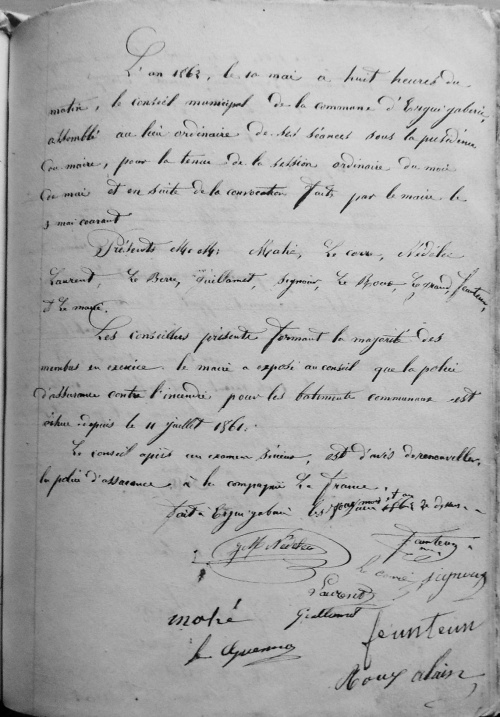 L'an 1862, le 10 mai à huit heures du
matin, le conseil municipal de la commune d'Ergué gabéric,
assemblé au lieu ordinaire de ses séances sous la présidence
du maire, pour la tenue de la session ordinaire du mois
de mai et en suite de la convocation faite par le maire le
3 mai courant
Présents M.M: Mahé, Le corre, Nédélec
Laurent, Le Berre, Guillamet, Signour, Le Roux, Le grand, feunteun,
et Le maire.
Les conseillers présents formant la majorité des
membres en exercice. le maire a exposé au conseil que la police
d'assurance contre l'incendie pour les batiments communaux est
échue depuis le 11 juillet 1861.
Le conseil après un examen sérieux, est d'avis de renouveller
la police d'assurance à la compagnie La france.
fait à Ergué gabéric les jour mois et an
que dessus
Nédélec
feunteun
maire
Signour
Laurent
Guillamet
mahé
feunteun
Roux alain